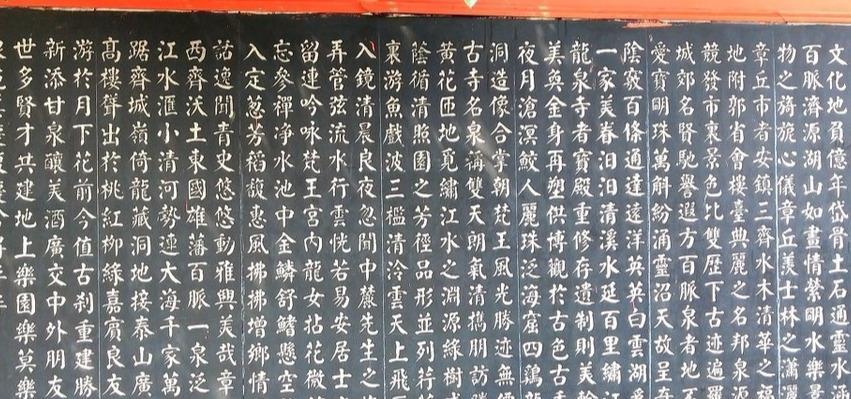 文化地負億年岱骨土石通靈水涵
百脈濟源湖山如畫情縈明水樂景
物之旖旎心儀章丘羨士林之瀟灑
章丘市者安鎮三齊水木清華之福
地附郭省會樓臺典麗之名邦泉源
競發市裏景色比雙歷下古迹遍羅
城郊名賢馳譽遐方百脈泉者地
愛寶明珠萬斛紛涌靈沼天故呈
陰竅百條通達遠洋英英白雲湖
一家美春汨汨清溪水延百里繡江
龍泉寺者寶殿重修存遺制則美輪
美奐金身再塑供博觀於古色古
夜月滄溟鮫人麗珠泛海窟四鷄龍
洞造像合掌朝梵王風光勝迹無
古寺名泉稱雙天朗氣清攜朋訪
黃花匝地覓繡江水之淵源綠樹
蔭循清照園之芳徑品形並列
裏游魚戲波三檻清泠雲天上飛
入鏡清晨良夜忽聞中麓先生之
弄管弦流水行雲恍若易安居士
留連吟咏梵王宮內龍女拈花微
忘參禪凈水池中金鱗舒鰭懸空
入定忽芳稻馥惠風拂拂增鄉情
話逸聞青史悠悠動雅興美哉章
西齊沃土東國雄藩百脈一泉泛
江水滙小清河勢連大海千家萬
踞齊城嶺倚龍藏洞地接泰山廣
高樓聲出於桃紅柳綠嘉賓良友
游於月下花前今值古刹重建勝
新添甘泉釀美酒廣交中外朋友
世多賢才共建地上樂園樂莫樂